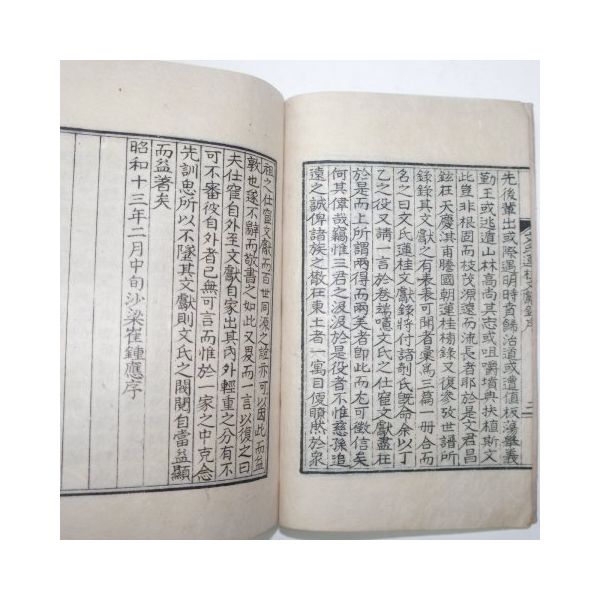 先後輩出或際遇明時賁餙治道或遭値板蕩敵義
勤王或逃遁山林高尚其志或咀嚼墳典扶植斯文
此豈非根固而枝茂源遠而流長者耶於是文君昌
鉉在天慶淇甫騰國朝蓮桂榜錄又復參攷世譜所
錄錄其文獻之有表表可聞者彙爲三篇一冊合而
名之曰文氏蓮桂文獻錄將付諸剞氏旣命余以丁
乙之役又請一言於卷端噫文氏之仕宦文獻盡在
於是而上所謂兩得而兩美者卽此而尤可徵信矣
何其偉哉竊惟三君之汲汲於是役者不惟慈孫追
遠之誠俾諸族之散在東土者一寓目便賾然於衆
祖之仕宦文獻而百世同源之誼亦可以因此而益
敦也遂不辭而敬書之如此又爰而一言以復之曰
夫仕宦自外至文獻自家出其內外輕重之分有不
可不審彼自外者已無可言而惟於一家之中克念
先訓思所以不墜其文獻則文氏之閥閱自當益顯
而益著矣
昭和十三年二月中旬沙梁崔鍾應序